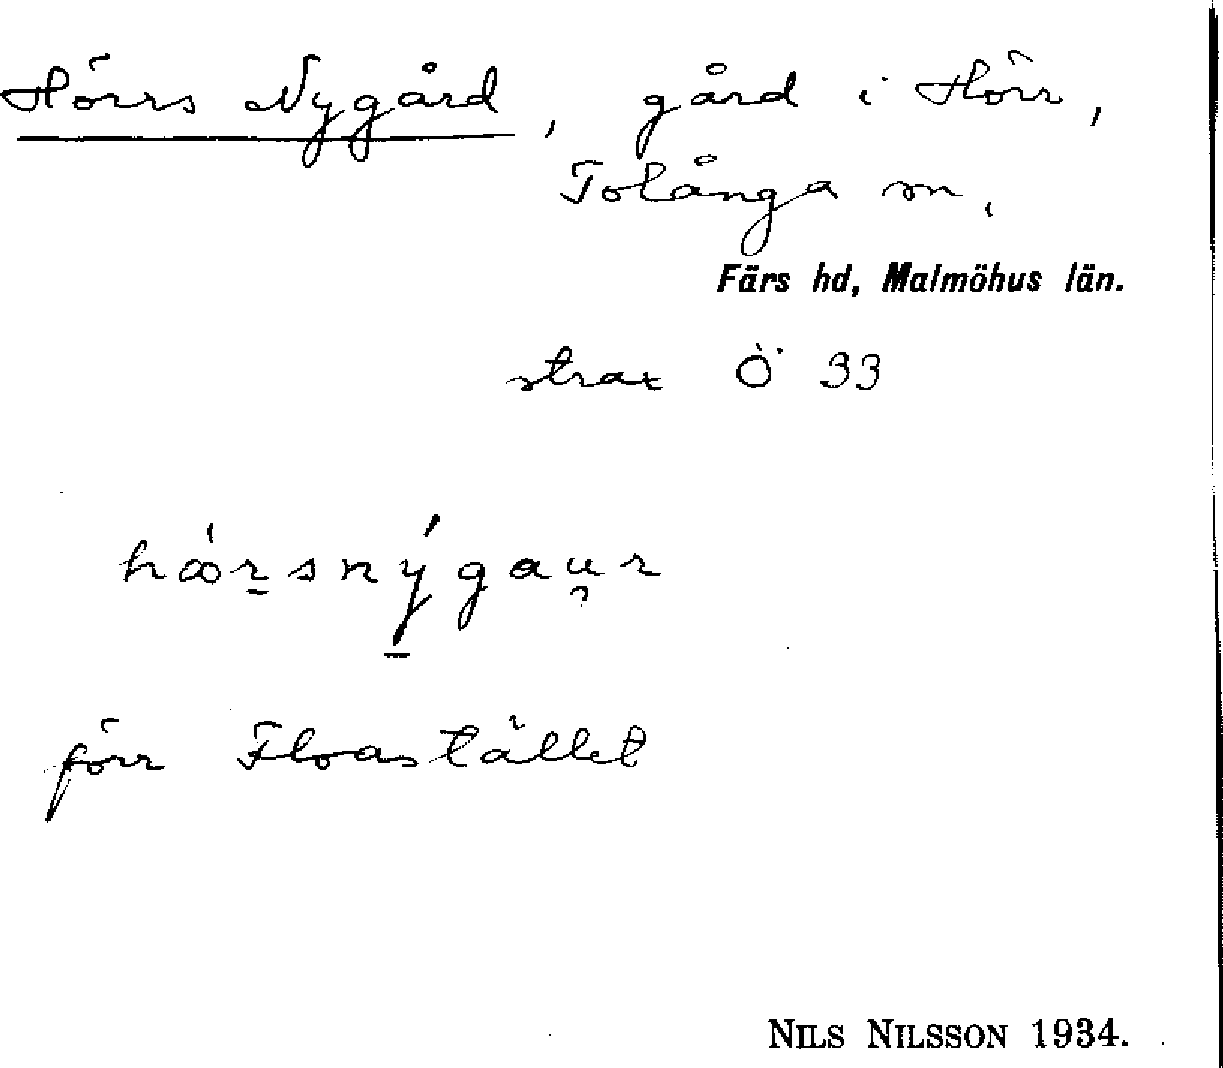 Hörrs Nygård, gård i Hörr,
Tolånga sn,
Färs hd, Malmöhus län.
strax Ö 33
hǿrsnýgau̯r
förr Floastället
NILS NILSSON 1934.